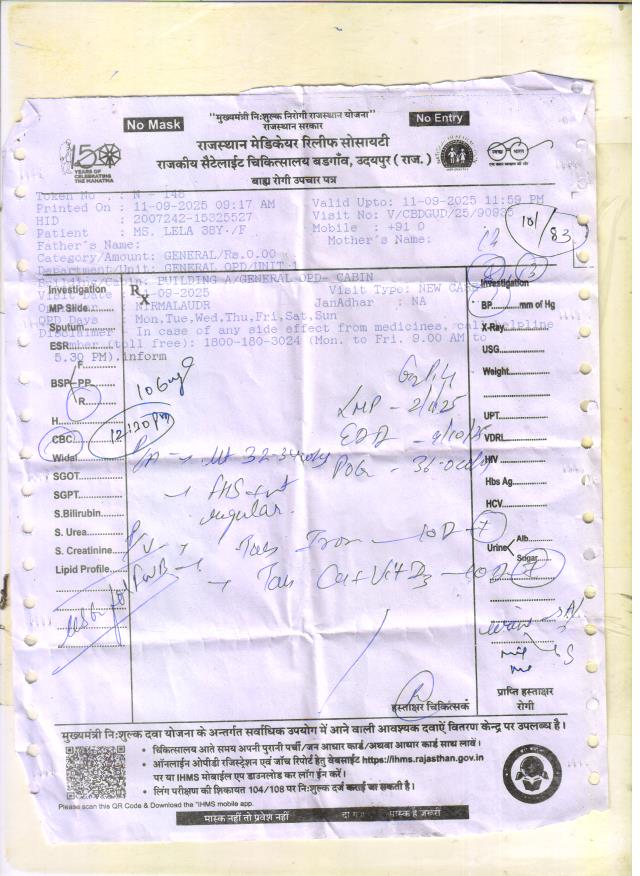 "मुख्यमंत्री नि:शुल्क निरोगी राजस्थान योजना"
No Mask
No Entry
राजस्थान सरकार
राजस्थान मेडिकेयर रिलीफ सोसायटी
राजकीय सैटेलाईट चिकित्सालय बड़गाँव, उदयपुर ( राज. )
बाह्य रोगी उपचार पत्र
150
YEARS OF
CELEBRATING
THE MAHATMA
Token No : N - 148
Printed On : 11-09-2025 09:17 AM Valid Upto: 11-09-2025 11:59 PM
HID : 2007242-15325527 Visit No: V/CBDGUD/25/90935
Patient : MS. LELA 38Y /F Mobile : +91 0
Father's Name: Mother's Name:
101/83
Category/Amount: GENERAL/Rs.0.00
Department/Unit: GENERAL OPD/UNIT-1
BUILDING A/GENERAL OPD- CABIN
Visit Date 11-09-2025 Visit Type: NEW CASE
NIRMALAUDR JanAadhar : NA
OPD Days : Mon,Tue,Wed,Thu,Fri,Sat,Sun
Disclaimer - In case of any side effect from medicines, call helpline
number (toll free): 1800-180-3024 (Mon. to Fri. 9.00 AM to
5.30 PM).inform
Rx
Investigation
MP Slide
Sputum
ESR
F
BSP PP
R
H
CBC
Widal
SGOT
SGPT
S.Bilirubin
S. Urea
S. Creatinine
Lipid Profile
106mg
12:20 pm
LMP - 2/1/25
EDD - 9/10/25
POG - 36
P/A 32-34
FHS
regular
Tab Iron 10D
Tab Cal + Vit D3 10D
USG for FWB
Investigation
BP mm of Hg
X-Ray
USG
Weight
UPT
VDRL
HIV
Hbs Ag
HCV
Urine Alb.
Sugar
हस्ताक्षर चिकित्सक
प्राप्ति हस्ताक्षर
रोगी
मुख्यमंत्री नि:शुल्क दवा योजना के अन्तर्गत सर्वाधिक उपयोग में आने वाली आवश्यक दवाऐं वितरण केन्द्र पर उपलब्ध है।
• चिकित्सालय आते समय अपनी पुरानी पर्ची/जन आधार कार्ड/अथवा आधार कार्ड साथ लावें।
• ऑनलाईन ओपीडी रजिस्ट्रेशन एवं जाँच रिपोर्ट हेतु वेबसाईट https://ihms.rajasthan.gov.in
पर या IHMS मोबाईल एप डाउनलोड कर लॉग ईन करें।
• लिंग परीक्षण की शिकायत 104/108 पर नि:शुल्क दर्ज कराई जा सकती है।
Please scan this QR Code & Download the "IHMS mobile app.
मास्क नहीं तो प्रवेश नहीं मास्क है जरूरी